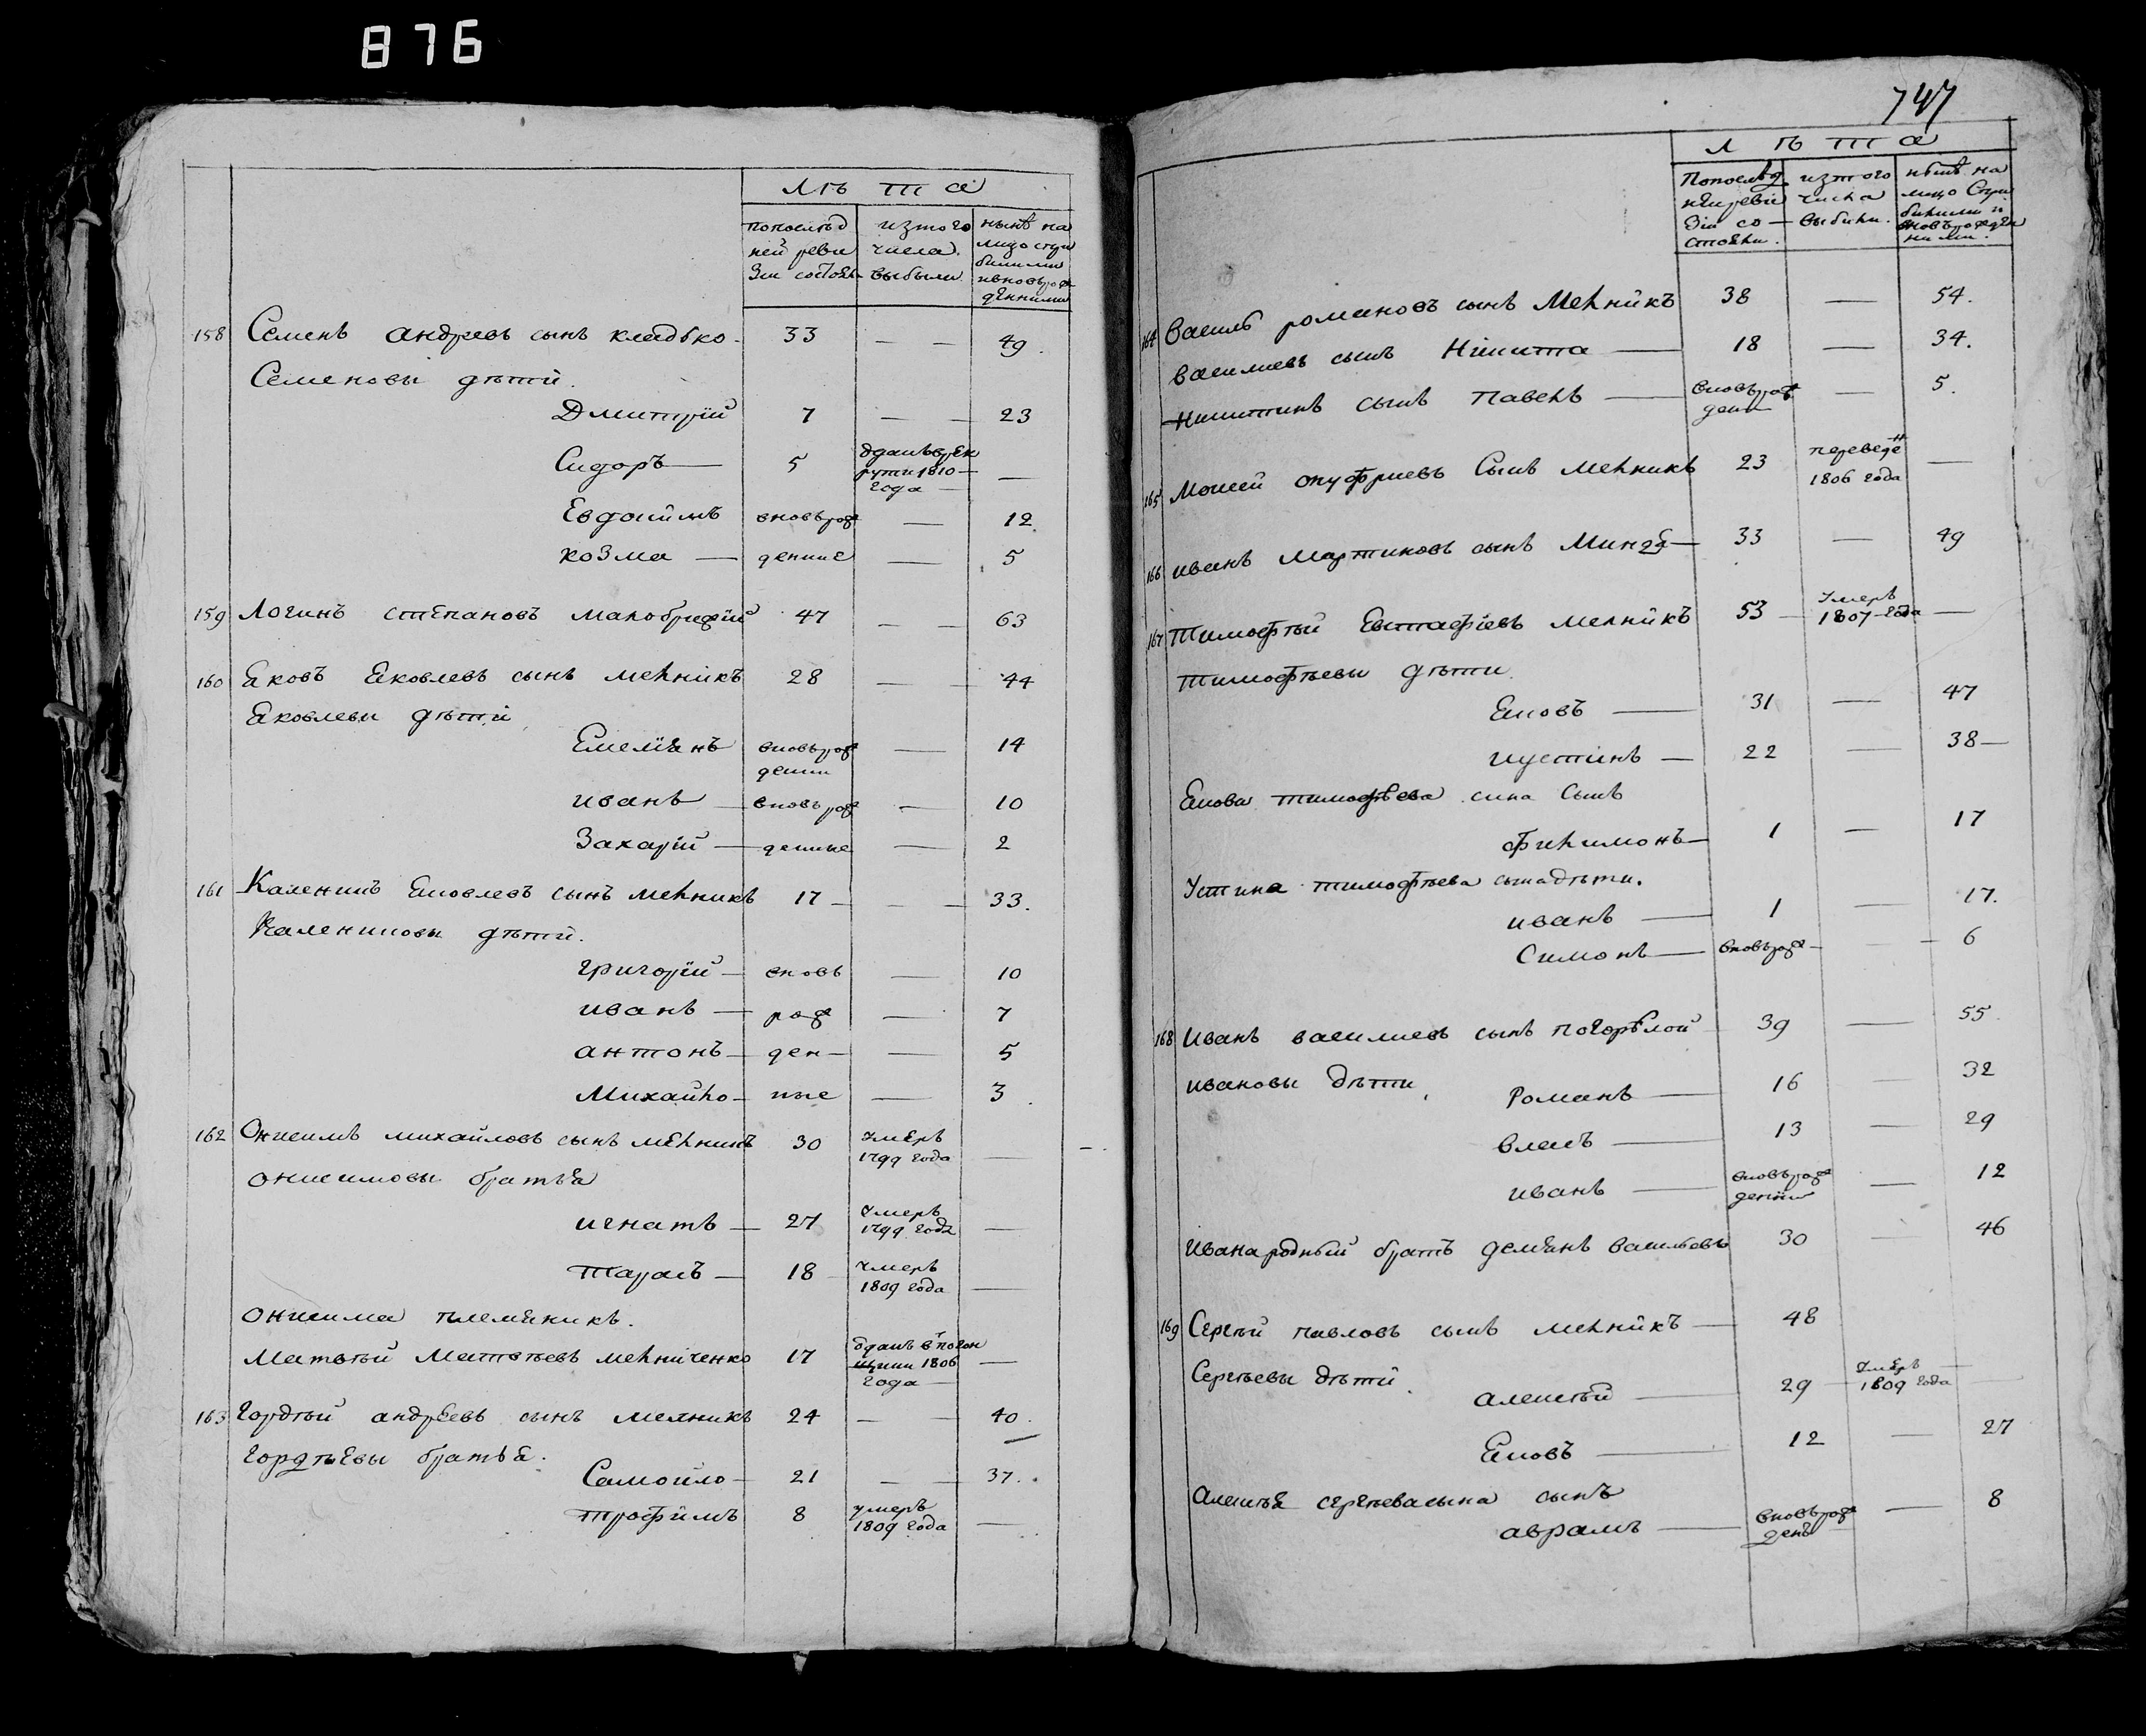 876
лѣта
попослѣд ней реви зіи состояли
изтого числа выбыли
нынѣ на лицо
158 Семенъ андреевъ сынъ кладько 33 — — 49.
Семеновы дѣти.
Дмитрій 7 — — 23
Сидоръ — 5 года — —
1810 —
Евдокимъ вновърож — 12.
козма — денние — 5
159 Логинъ степановъ 47 — — 63
160 Яковъ Яковлевъ сынъ мелникъ 28 — — 44
Яковлевы дѣти
Емельянъ вновьрож — 14
денни
иванъ — вновърож — 10
Захарій — денные — 2
161 Каленикъ Яковлевъ сынъ мелникъ 17 — — — 33.
Калениковы дѣти.
григорій — вновь — 10
иванъ — рож — 7
антонъ — ден — — 5
Михайло — ние — 3
162 Онисимъ михайловъ сынъ мелникъ 30 умеръ
1799 года —
онисимовы братья
игнатъ — 27 умеръ
1799 года —
тарасъ — 18 умеръ
1809 года —
онисима племяникъ.
Матвѣй Матвѣевъ мелниченко 17
1806 —
года —
163 Гордѣй андрѣевъ сынъ мелникъ 24 — — 40.
Гордѣевы братья.
Самойло — 21 — — 37.
трофимъ 8 умеръ
1809 года —
747
лѣта
Попослѣд нейреви зіи со стояли.
изтого числа выбили.
нынѣ на лицо
164 василь романовъ сынъ Мелникъ 38 — 54.
василиевъ сынъ Никита — 18 — 34.
Никитинъ сынъ павелъ — вновьрож — 5.
ден
165 Мосей онуфриевъ Сынъ мелникъ 23 переведен —
1806 года
166 иванъ Мартиновъ сынъ 33 — 49
167 тимофѣй Евтафіевъ мелникъ 53 — умеръ
1807 года —
тимофѣевы дѣти
Яковъ — 31 — 47
иустинъ — 22 — 38 —
Якова тимофѣева сина Сынъ
филимонъ — 1 — 17
Устина тимофѣева сынадѣти.
иванъ — 1 — 17.
Симонъ — вновърож — — 6
168 иванъ василиевъ сынъ погорѣлой 39 — 55
ивановы дѣти
Романъ — 16 — 32
власъ — 13 — 29
иванъ — вновърож — 12
денни
Ивана родный братъ демянъ васильевъ 30 — 46
169 Сергѣй павловъ сынъ мелникъ — 48
Сергѣевы дѣти
алексѣй — 29 — умеръ —
1809 года
Яковъ — 12 — 27
Алексѣя сергѣевасына сынъ
аврамъ — вновърож — 8
денъ